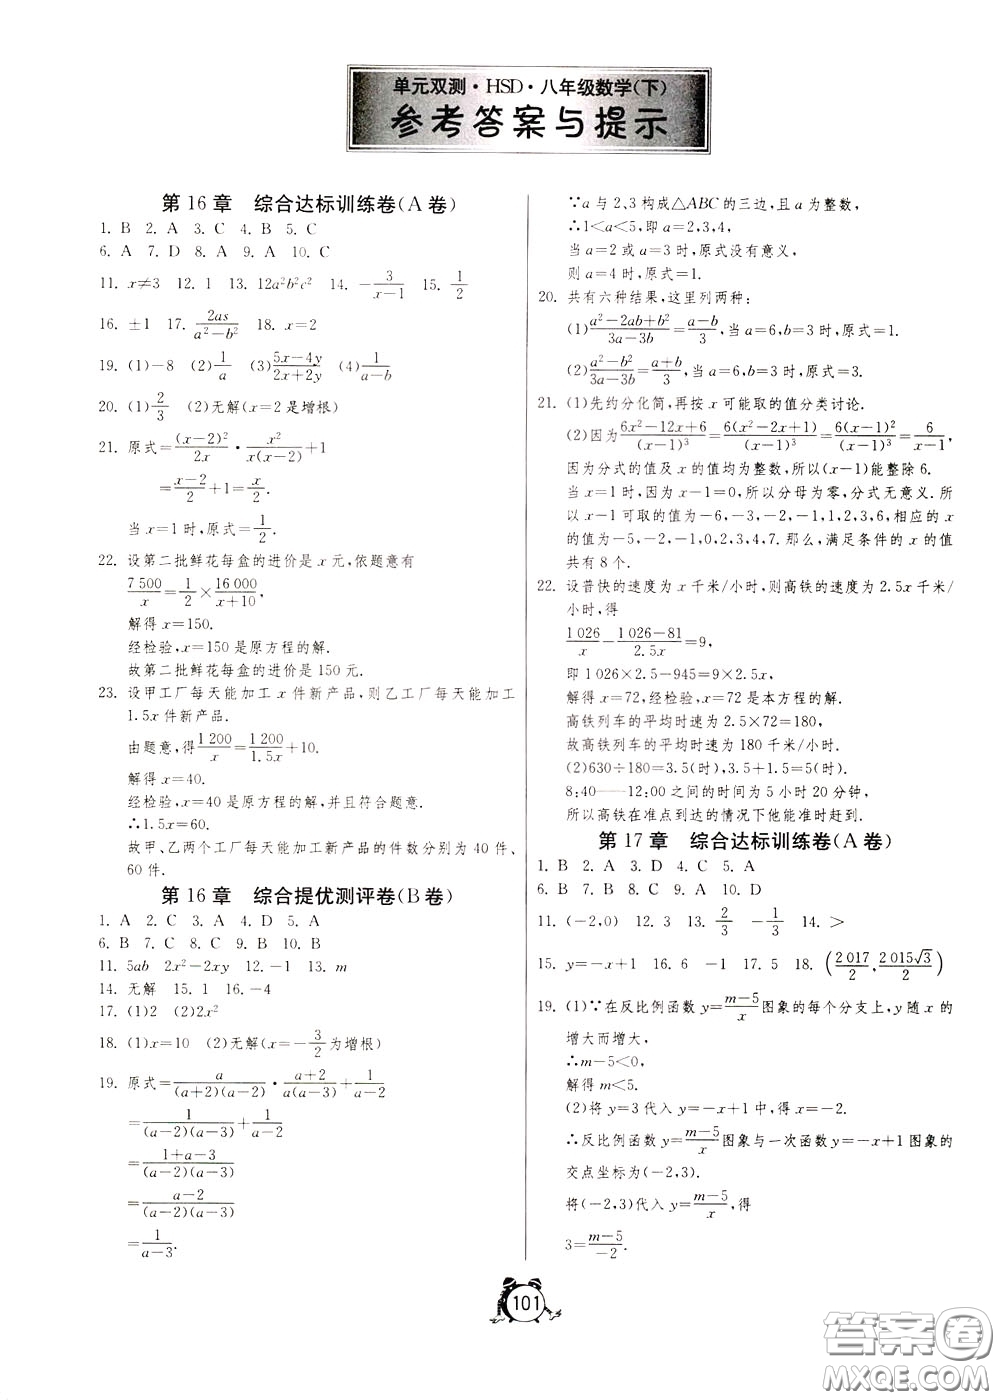 单元双测·HSD·八年级数学(下)
参考答案与提示
第16章 综合达标训练卷(A卷)
1. B 2. A 3. C 4. B 5. C
6. A 7. D 8. A 9. A 10. C
11. x≠3 12. 1 13. 12a²b²c² 14. -3/(x-1) 15. 1/2
16. ±1 17. 2as/(a²-b²) 18. x=2
19. (1)-8 (2)1/a (3)(5x-4y)/(2x+2y) (4)1/(a-b)
20. (1)2/3 (2)无解(x=2是增根)
21. 原式=(x-2)²/2x·x²/x(x-2)+1
=(x-2)/2+1=x/2.
当x=1时,原式=1/2.
22. 设第二批鲜花每盒的进价是x元,依题意有
7 500/x=1/2×16 000/(x+10),
解得x=150.
经检验,x=150是原方程的解.
故第二批鲜花每盒的进价是150元.
23. 设甲工厂每天能加工x件新产品,则乙工厂每天能加工
1.5x件新产品.
由题意,得1 200/x=1 200/1.5x+10.
解得x=40.
经检验,x=40是原方程的解,并且符合题意.
∴1.5x=60.
故甲、乙两个工厂每天能加工新产品的件数分别为40件、
60件.
第16章 综合提优测评卷(B卷)
1. A 2. C 3. A 4. D 5. A
6. B 7. C 8. C 9. B 10. B
11. 5ab 2x²-2xy 12. -1 13. m
14. 无解 15. 1 16. -4
17. (1)2 (2)2x²
18. (1)x=10 (2)无解(x=-3/2为增根)
19. 原式=a/(a+2)(a-2)·(a+2)/a(a-3)+1/(a-2)
=1/(a-2)(a-3)+1/(a-2)
=(1+a-3)/(a-2)(a-3)
=(a-2)/(a-2)(a-3)
=1/(a-3).
∵a与2、3构成△ABC的三边,且a为整数,
∴1<a<5,即a=2,3,4,
当a=2或a=3时,原式没有意义,
则a=4时,原式=1.
20. 共有六种结果,这里列两种:
(1)(a²-2ab+b²)/(3a-3b)=(a-b)/3,当a=6,b=3时,原式=1.
(2)(a²-b²)/(3a-3b)=(a+b)/3,当a=6,b=3时,原式=3.
21. (1)先约分化简,再按x可能取的值分类讨论.
(2)因为(6x²-12x+6)/(x-1)³=6(x²-2x+1)/(x-1)³=6(x-1)²/(x-1)³=6/(x-1),
因为分式的值及x的值均为整数,所以(x-1)能整除6.
当x=1时,因为x-1=0,所以分母为零,分式无意义.所
以x-1可取的值为-6,-3,-2,-1,1,2,3,6,相应的x
的值为-5,-2,-1,0,2,3,4,7.那么,满足条件的x的值
共有8个.
22. 设普快的速度为x千米/小时,则高铁的速度为2.5x千米/
小时,得
1 026/x-(1 026-81)/2.5x=9,
即1 026×2.5-945=9×2.5x,
解得x=72,经检验,x=72是本方程的解.
高铁列车的平均时速为2.5×72=180,
故高铁列车的平均时速为180千米/小时.
(2)630÷180=3.5(时),3.5+1.5=5(时).
8:40——12:00之间的时间为5小时20分钟,
所以高铁在准点到达的情况下他能准时赶到.
第17章 综合达标训练卷(A卷)
1. B 2. A 3. D 4. C 5. A
6. B 7. B 8. A 9. A 10. D
11. (-2,0) 12. 3 13. 2/3 -1/3 14. >
15. y=-x+1 16. 6 -1 17. 5 18. (2 017/2,2 015√3/2)
19. (1)∵在反比例函数y=(m-5)/x图象的每个分支上,y随x的
增大而增大,
∴m-5<0,
解得m<5.
(2)将y=3代入y=-x+1中,得x=-2.
∴反比例函数y=(m-5)/x图象与一次函数y=-x+1图象的
交点坐标为(-2,3).
将(-2,3)代入y=(m-5)/x,得
3=(m-5)/-2.
101
答案卷
MXQE.COM